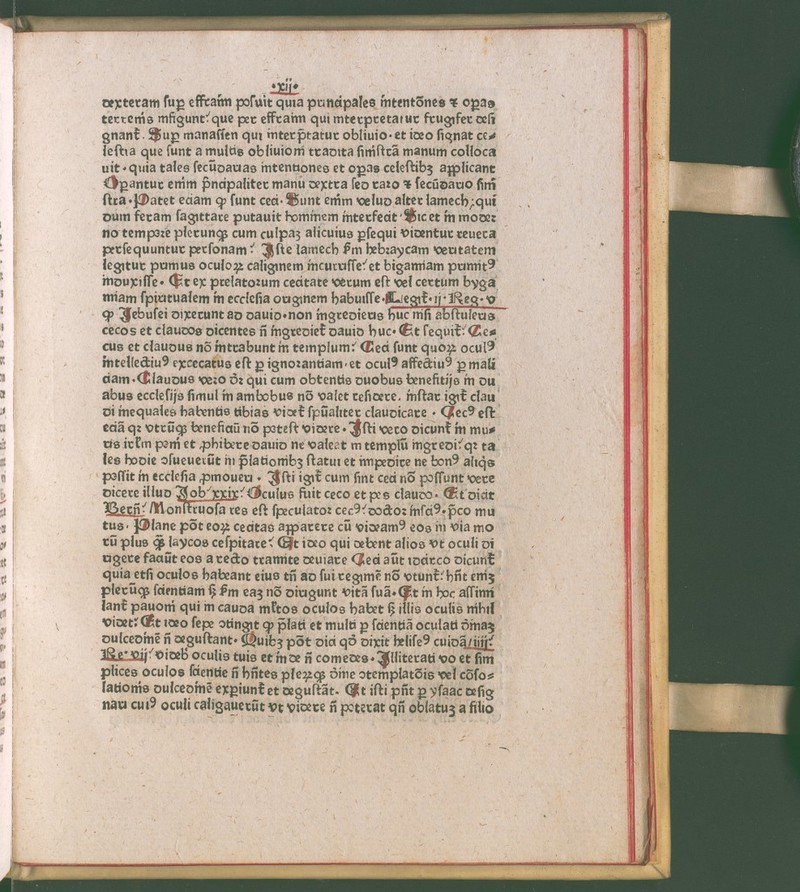 ·xij·
dexteram suꝑ effraim posuit quia principales intentōnes ⁊ opas
terrenis insigunt: que per effraim qui interpretatur frugifer desi
gnant̄. Suꝑ manassen qui interp̄tatur obliuio· et ideo signat ce⸗
lestia que sunt a multis obliuioni tradita sinistrā manum colloca
uit· quia tales secūdarias intentiones et opas celestibꝫ applicant
Opantur enim p̄ncipaliter manu dextra sed raro ⁊ secūdario sini
stra· Patet eciam ꝙ sunt ceci· Sunt enim velud alter lamech; qui
dum feram sagittare putauit hominem interfecit· Sic et in moder
no tempore plerunqꝫ cum culpaꝫ alicuius ꝑsequi videntur reuera
persequuntur personam: Iste lamech ẜm hebraycam veritatem
legitur primus oculoꝝ caliginem incurrisse: et bigamiam primitꝰ
induxisse· Et ex prelatorum cecitate verum est vel certum byga
miam spiritualem in ecclesia originem habuisse· Legit̄· ij· Reg· v
ꝙ Jebusei dixerunt ad dauid· non ingredieris huc nisi abstuleris
cecos et claudos dicentes n̄ ingrediet̄ dauid huc· Et sequit̄: Ce⸗
cus et claudus nō intrabunt in templum: Ceci sunt quoꝝ oculꝰ
intellectiuꝰ excecatus est ꝑ ignorantiam· et oculꝰ affectiuꝰ ꝑ mali
ciam· Claudus vero dꝛ qui cum obtentis duobus beneficijs in du
abus ecclesijs simul in ambobus nō valet residere. instar igit̄ clau
di inequales habentis tibias videt̄ spūaliter claudicare · Cecꝰ est
eciā qꝛ vtrūqꝫ beneficiū nō potest videre· Isti vero dicunt̄ in mu⸗
ris irlm̄ poni et ꝓhibere dauid ne valeat in templū ingredi: qꝛ ta
les hodie ɔsueuerūt in p̄lationibꝫ statui et impedire ne bonꝰ aliqͥs
possit in ecclesia ꝓmoueri · Isti igit̄ cum sint ceci nō possunt vere
dicere illud Job· xxix: Oculus fui ceco et pes claudo· Et dicit
Berñ: Monstruosa res est speculator cecꝰ: doctor insciꝰ· p̄co mu
tus· Plane pōt eoꝝ cecitas apparere cū videamꝰ eos in via mo
rū plus qͣꝫ laycos cespitare: Et ideo qui debent alios vt oculi di
rigere faciūt eos a recto tramite deuiare Ceci aūt idcirco dicunt̄
quia etsi oculos habeant eius tn̄ ad sui regimē nō vtunt̄: hn̄t eniꝫ
plerūqꝫ scientiam sꝫ ẜm eaꝫ nō dirigunt vitā suā· Et in hoc assimi
lant̄ pauoni qui in cauda ml̄tos oculos habet sꝫ illis oculis nihil
videt: Et ideo sepe ɔtingit ꝙ p̄lati et multi ꝑ scientiā oculati diuinaꝫ
dulcedinē n̄ degustant· Quibꝫ pōt dici qd̄ dixit heliseꝰ cuidā iiij·
Re· vij: videb̄ oculis tuis et inde n̄ comedes· Illiterati vo et sim
plices oculos scientie n̄ hn̄tes pleꝝqꝫ diuine ɔtemplatōis vel cōso⸗
lationis dulcedinē exꝑiunt̄ et degustāt. Et isti pn̄t ꝑ ysaac desig
nari cuiꝰ oculi caligauerūt vt videre n̄ poterat qn̄ oblatuꝫ a filio